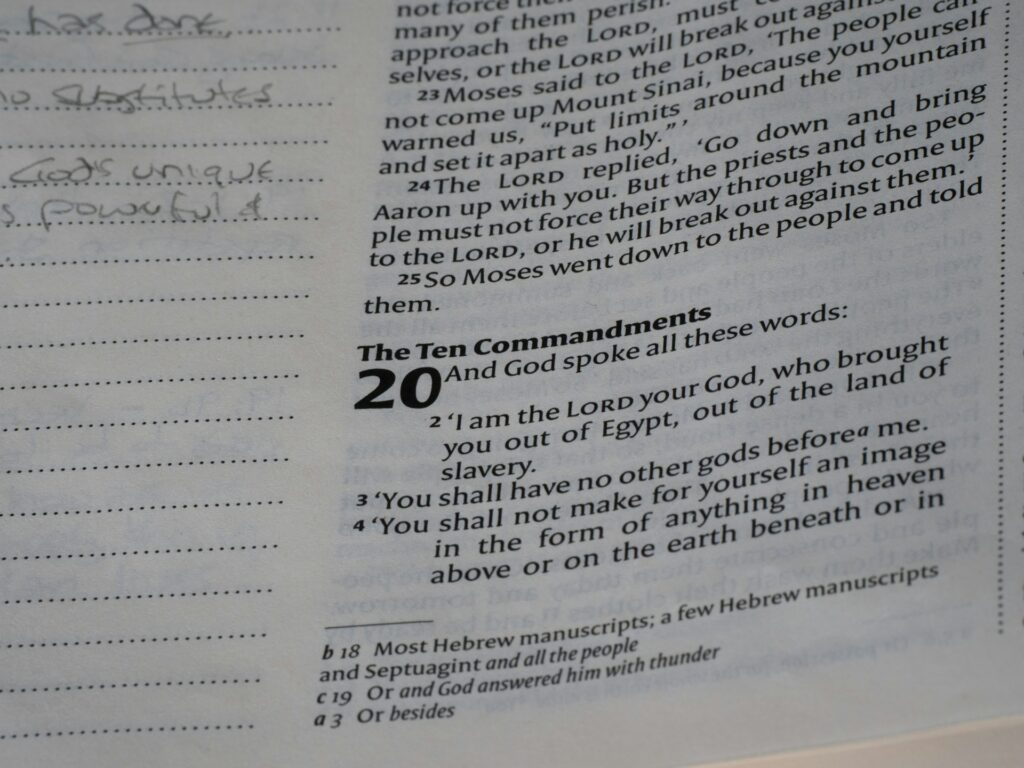 has done,
no substitutes
God's unique
powerful &
not force their
many of them perish.
approach the LORD, must
selves, or the LORD will break out against
23 Moses said to the LORD, 'The people can
not come up Mount Sinai, because you yourself
warned us, "Put limits around the mountain
and set it apart as holy."'
24 The LORD replied, 'Go down and bring
Aaron up with you. But the priests and the peo-
ple must not force their way through to come up
to the LORD, or he will break out against them.'
25 So Moses went down to the people and told
them.
The Ten Commandments
20 And God spoke all these words:
2 'I am the LORD your God, who brought
you out of Egypt, out of the land of
slavery.
3 'You shall have no other gods before a me.
4 'You shall not make for yourself an image
in the form of anything in heaven
above or on the earth beneath or in
b 18 Most Hebrew manuscripts; a few Hebrew manuscripts
and Septuagint and all the people
c 19 Or and God answered him with thunder
a 3 Or besides